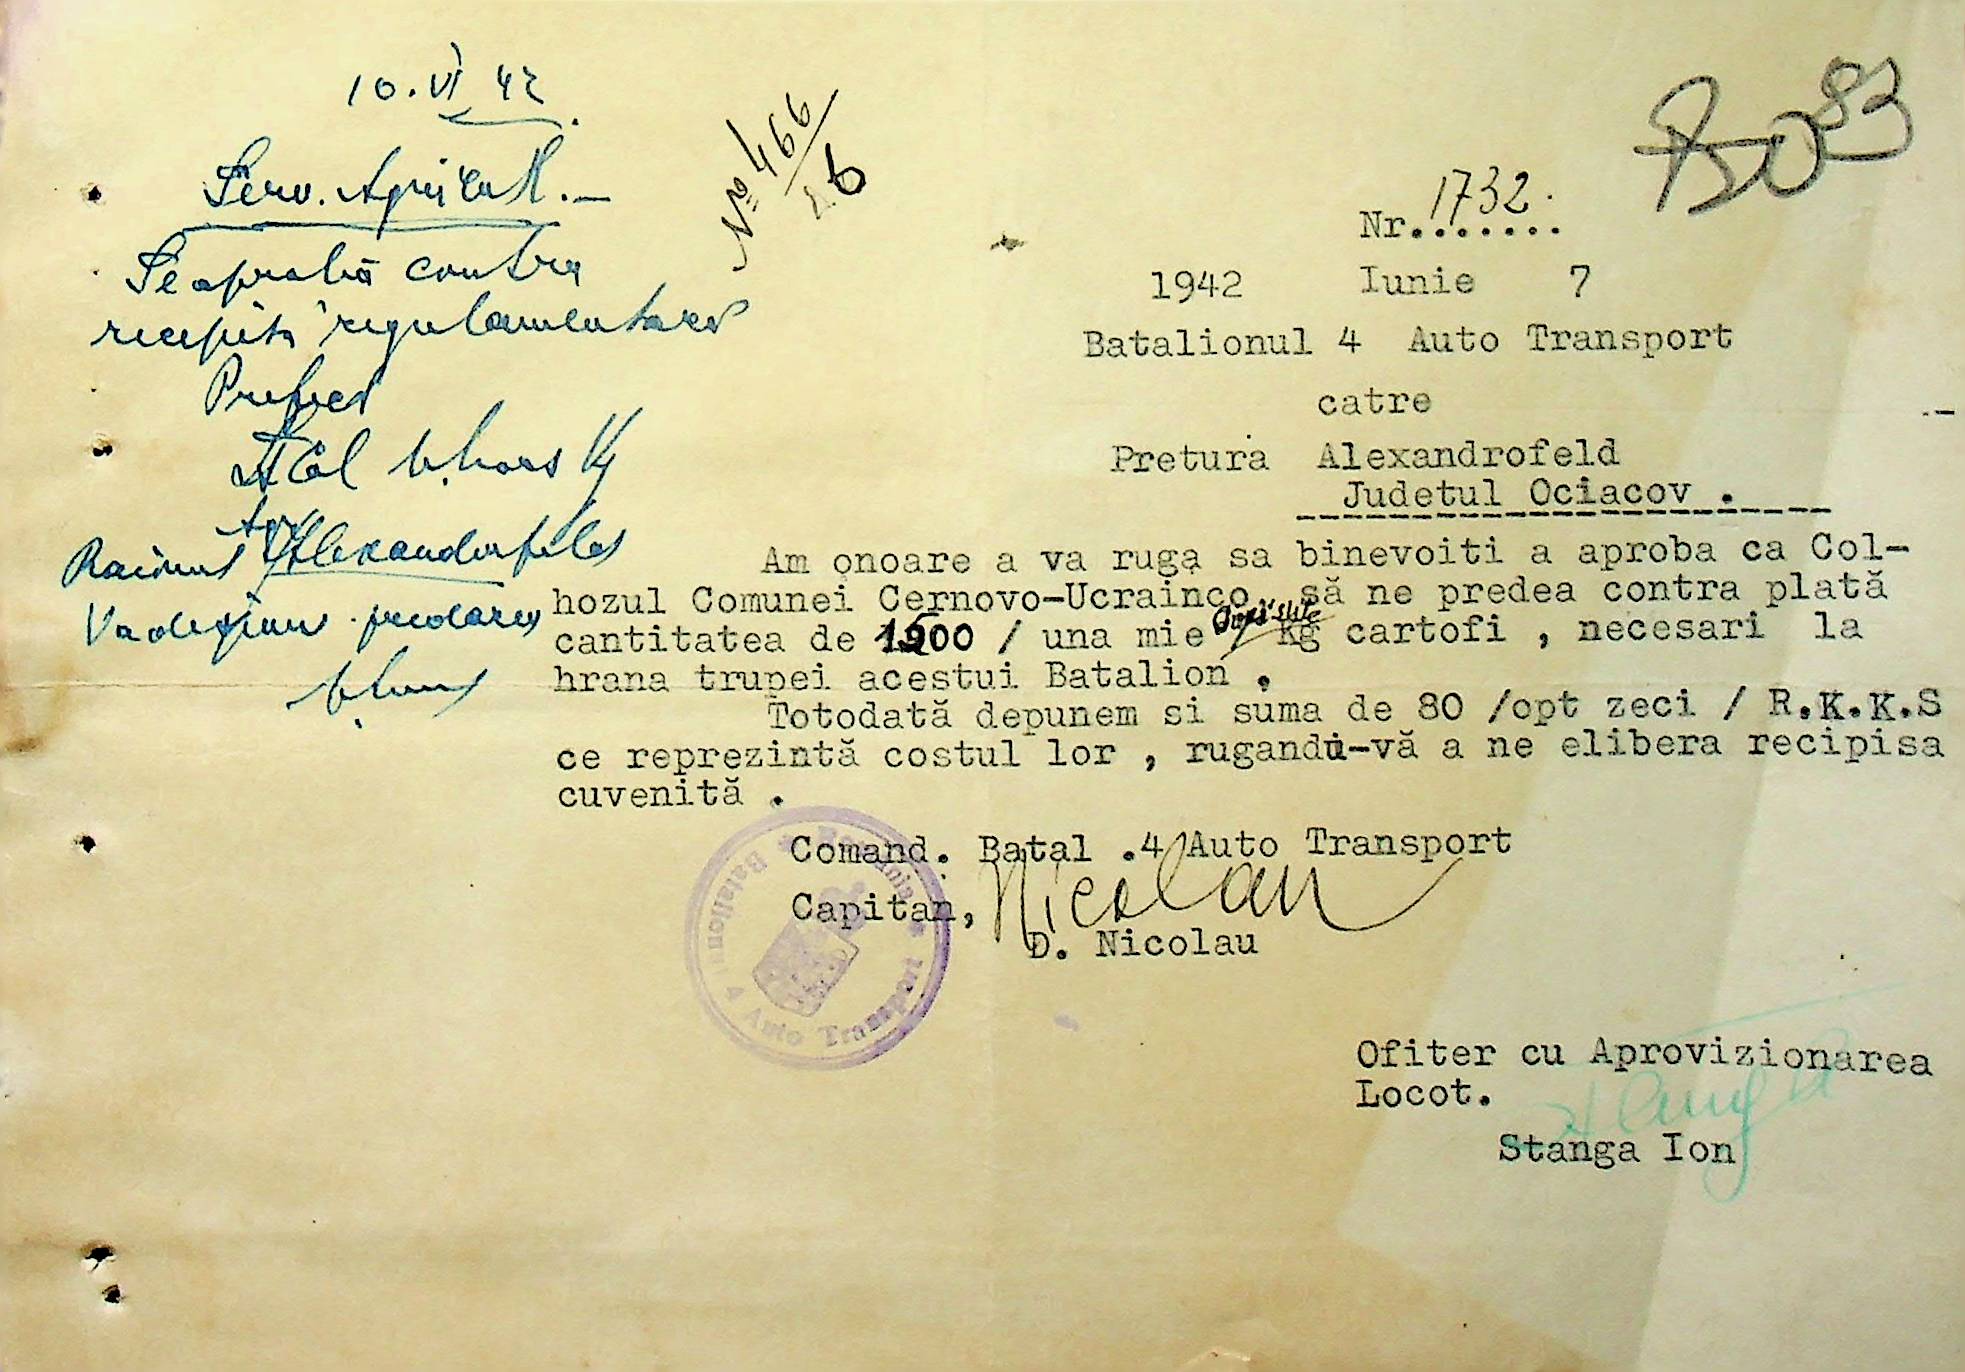 10.VI 42
Serv. Agricol.—
Se aprobă contra
recipisă regulamentară
Prefect
Col
Raionul Alexanderfeld
Va dispune predarea
No 466
6
83
Nr.1732.
1942 Iunie 7
Batalionul 4 Auto Transport
catre
Pretura Alexandrofeld
Judetul Ociacov .
Am onoare a va ruga sa binevoiti a aproba ca Col-
hozul Comunei Cernovo-Ucrainco, să ne predea contra plată
cantitatea de 1500 / una mie / Kg cartofi , necesari la
hrana trupei acestui Batalion .
Totodată depunem si suma de 80 /opt zeci / R.K.K.S
ce reprezintă costul lor , rugandu-vă a ne elibera recipisa
cuvenită .
Comand. Batal .4 Auto Transport
Capitan, Nicolau
D. Nicolau
Romania * Batalionul 4 Auto Transport *
Ofiter cu Aprovizionarea
Locot.
Stanga
Stanga Ion